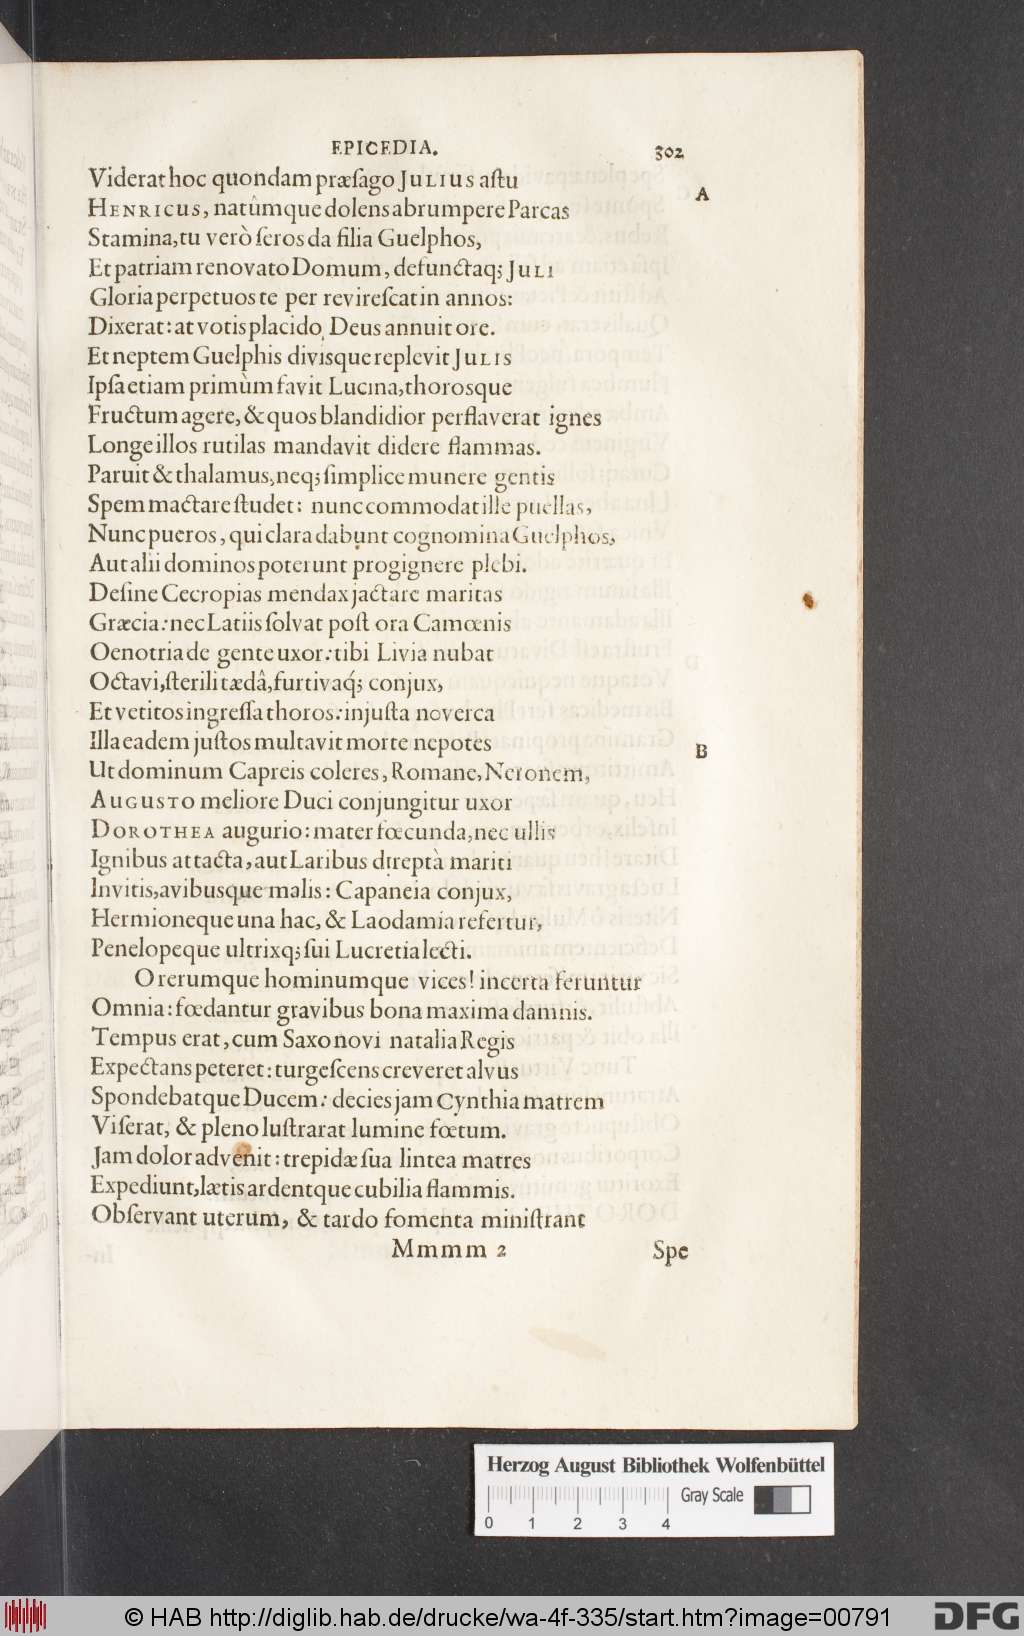 EPICEDIA. 302
Viderat hoc quondam præſago JULIUS aſtu
A
HENRICUS, natûmque dolens abrumpere Parcas
Stamina, tu verò ſeros da filia Guelphos,
Et patriam renovato Domum, defunctaq; JULI
Gloria perpetuos te per revireſcat in annos:
Dixerat: at votis placido Deus annuit ore.
Et neptem Guelphis divisque replevit JULIS
Ipſa etiam primùm favit Lucina, thorosque
Fructum agere, & quos blandidior perflaverat ignes
Longe illos rutilas mandavit didere flammas.
Paruit & thalamus, neq; ſimplice munere gentis
Spem mactare ſtudet: nunc commodat ille puellas,
Nunc pueros, qui clara dabunt cognomina Guelphos,
Aut alii dominos poterunt progignere plebi.
Deſine Cecropias mendax jactare maritas
Græcia: nec Latiis ſolvat poſt ora Camœnis
Oenotria de gente uxor: tibi Livia nubat
Octavi, ſterili tædâ, furtivaq́; conjux,
Et vetitos ingreſſa thoros: injuſta noverca
Illa eadem juſtos multavit morte nepotes
B
Ut dominum Capreis coleres, Romane, Neronem,
AUGUSTO meliore Duci conjungitur uxor
DOROTHEA augurio: mater fœcunda, nec ullis
Ignibus attacta, aut Laribus direptà mariti
Invitis, avibusque malis: Capaneia conjux,
Hermioneque una hac, & Laodamia refertur,
Penelopeque ultrixq; ſui Lucretia lecti.
O rerumque hominumque vices! incerta feruntur
Omnia: fœdantur gravibus bona maxima damnis.
Tempus erat, cum Saxo novi natalia Regis
Expectans peteret: turgeſcens creveret alvus
Spondebatque Ducem: decies jam Cynthia matrem
Viſerat, & pleno luſtrarat lumine fœtum.
Jam dolor advenit: trepidæ ſua lintea matres
Expediunt, lætis ardentque cubilia flammis.
Obſervant uterum, & tardo fomenta miniſtrant
Mmmm 2 Spe
Herzog August Bibliothek Wolfenbüttel
Gray Scale
0 1 2 3 4
© HAB http://diglib.hab.de/drucke/wa-4f-335/start.htm?image=00791 DFG